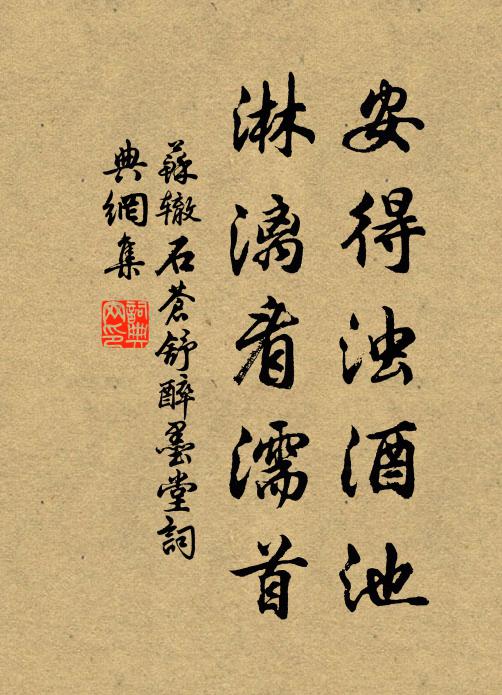 安得浊酒池
淋漓看濡首
蘇辙石蒼舒醉墨堂詞
典網集
詞典網印